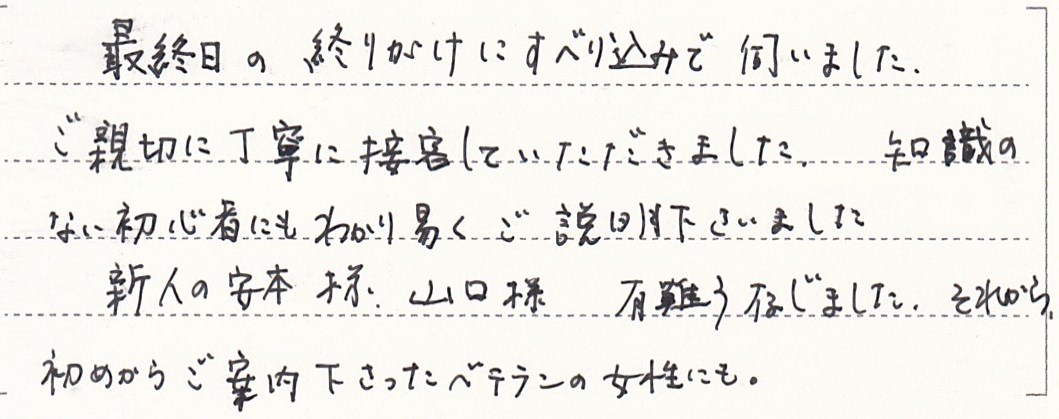 最終日の終りがけにすべり込みで伺いました.
ご親切に丁寧に接客していただきました. 知識の
ない初心者にもわかり易くご説明下さいました
新人の安本様. 山口様 有難う存じました. それから,
初めからご案内下さったベテランの女性にも。